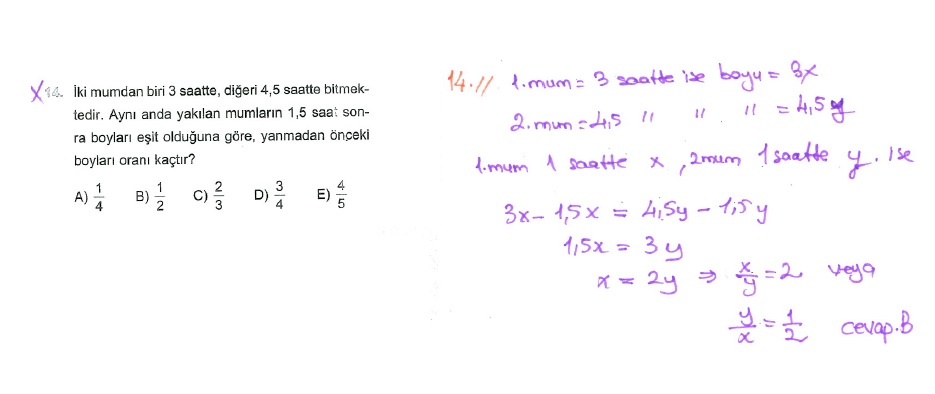 X14. İki mumdan biri 3 saatte, diğeri 4,5 saatte bitmek-
tedir. Aynı anda yakılan mumların 1,5 saat son-
ra boyları eşit olduğuna göre, yanmadan önceki
boyları oranı kaçtır?
A) 1/4 B) 1/2 C) 2/3 D) 3/4 E) 4/5
14.// 1.mum = 3 saatte ise boyu = 3x
2.mum = 4,5 " " " = 4,5y
1.mum 1 saatte x, 2mum 1 saatte y. ise
3x - 1,5x = 4,5y - 1,5y
1,5x = 3y
x = 2y ⇒ x/y = 2 veya
y/x = 1/2 cevap.B